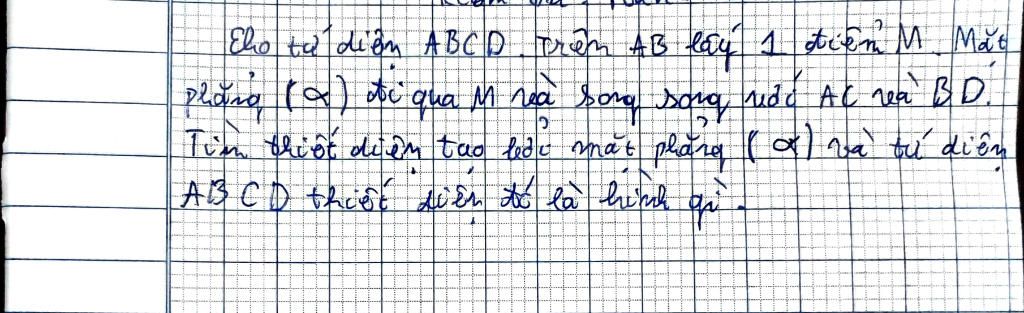 Cho tứ diện ABCD. Trên AB lấy 1 điểm M. Mặt
phẳng (α) đi qua M và song song với AC và BD.
Tìm thiết diện tạo bởi mặt phẳng (α) và tứ diện
ABCD thiết diện đó là hình gì.